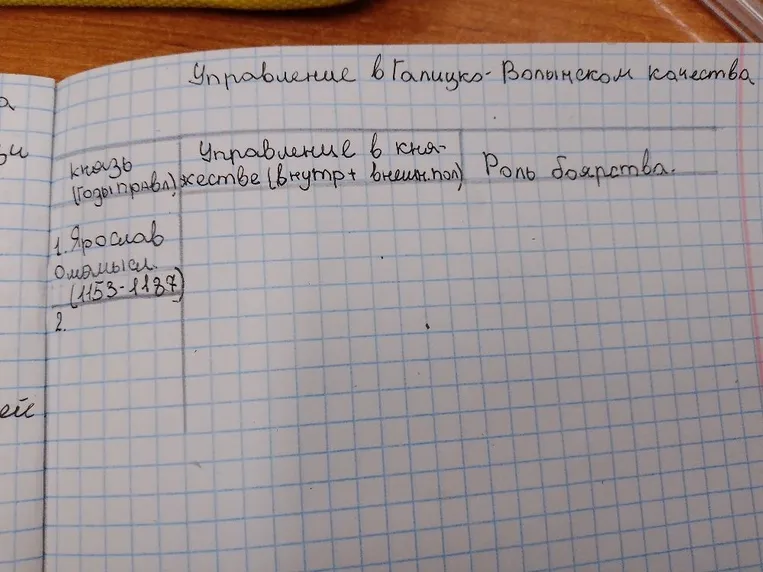 Управление в Галицко-Волынском качества
князь
(годы правл)
Управление в кня-
жестве (внутр + внешн.пол)
Роль боярства.
1. Ярослав
Осмомысл.
(1153-1187)
2.
а
зи
ей